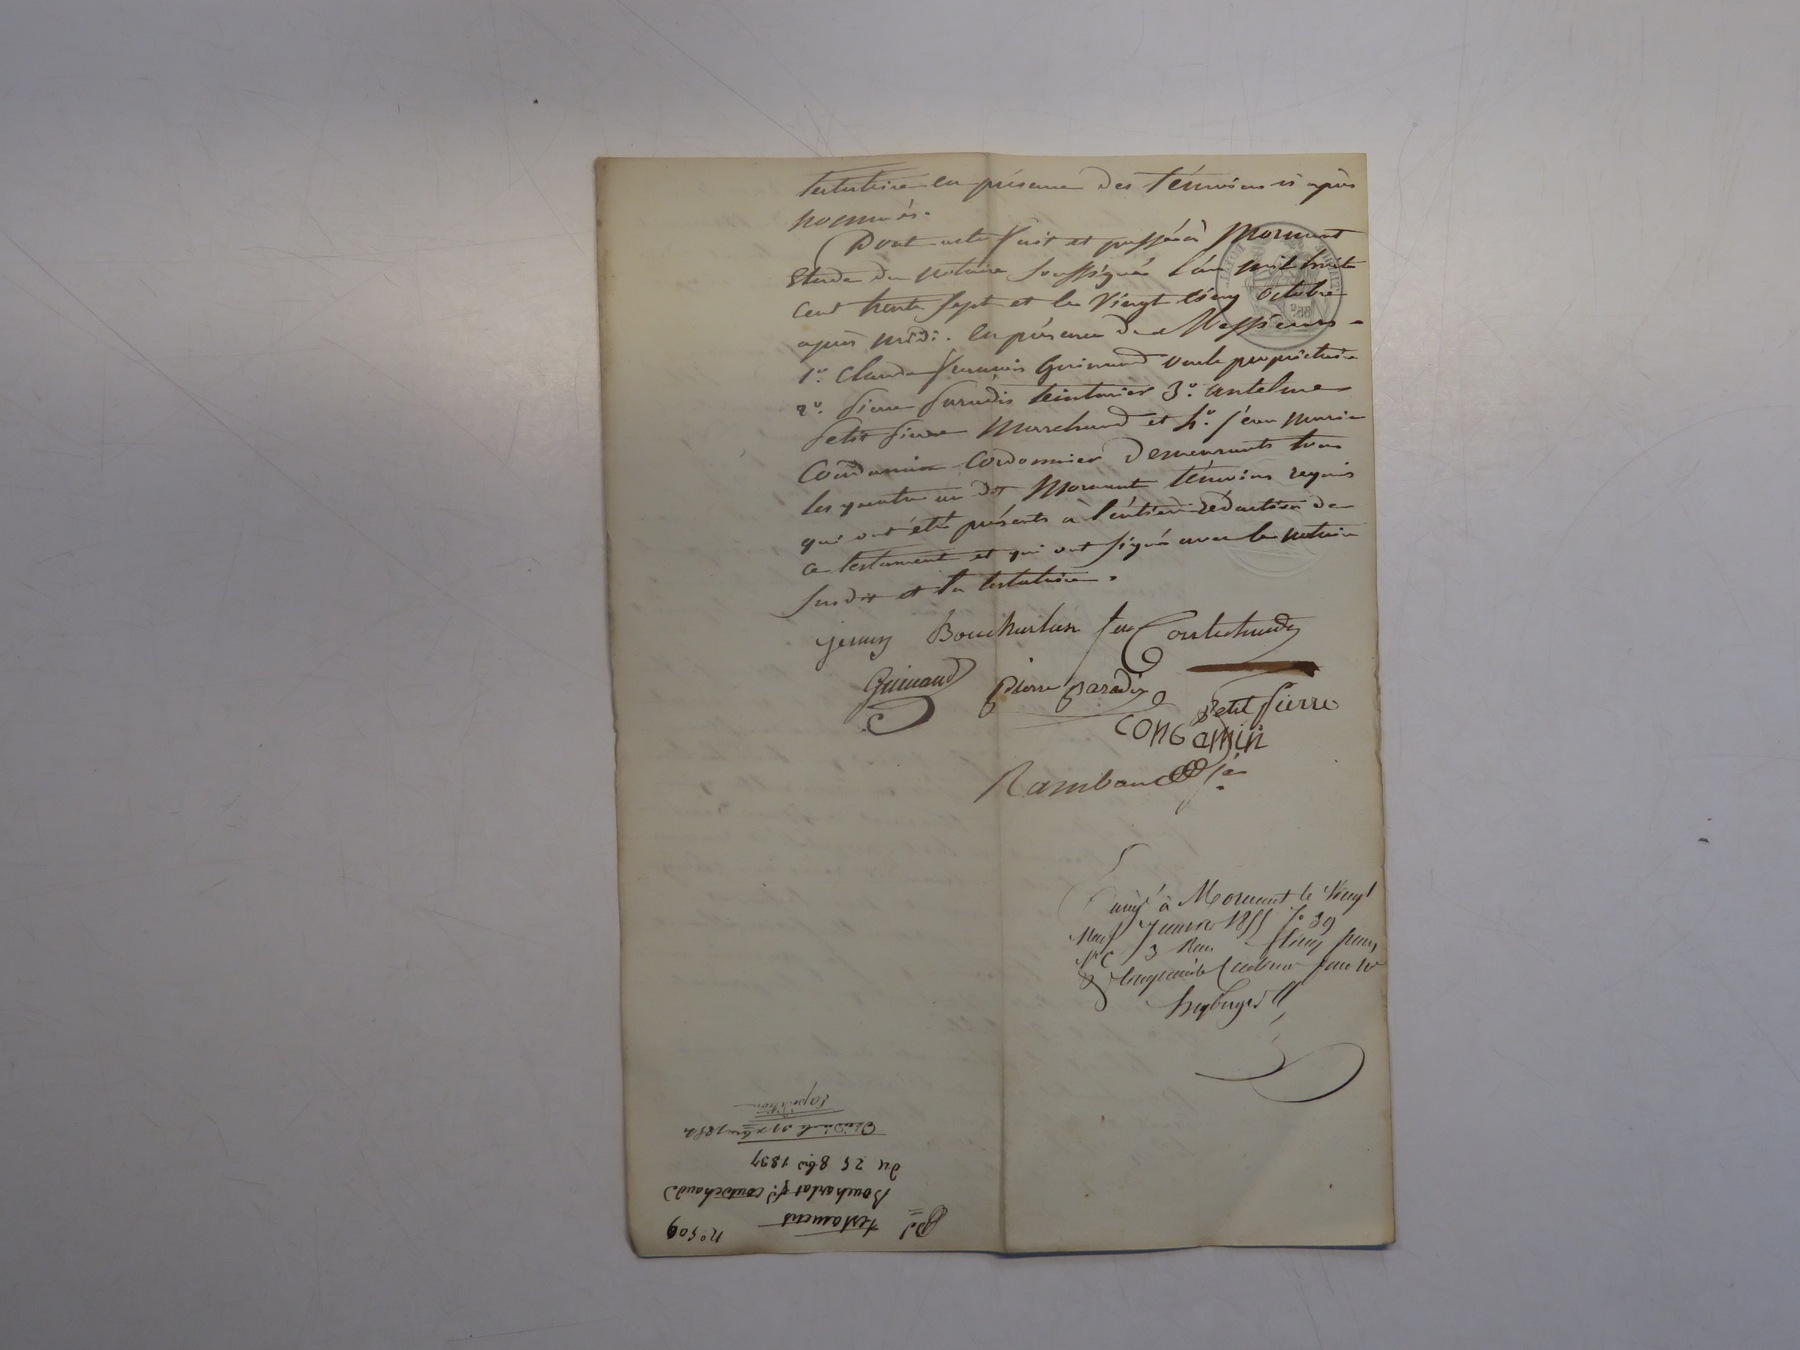 testatrice en présence des témoins ci après
nommés.
Dont acte fait et passé à Mornant
Etude du notaire soussigné l'an mil huit
cent trente sept et le vingt cinq octobre
après midi. en présence de Messieurs
1º. Claude François Guinand veuf propriétaire
2º. Pierre Paradis teinturier 3º. antelme
Petit Pierre Marchand et 4º. Jean Marie
Condamin Cordonnier demeurants tous
les quatre au dit Mornant témoins requis
qui ont été présents à l'entière rédaction de
ce testament et qui ont signé avec le notaire
susdit et la testatrice.
Boucharlat fe Coutechaude
Guinand Pierre Paradis
Petit Pierre
conGamin
Rambaud
à Mornant le vingt
neuf Janvier 1855 fº 39
cinq francs
cinquante centimes
nº 509
Testament
Boucharlat fe. coutechaude
du 25 8bre 1837
Décédée le 31 Xbre 1854
Expédition